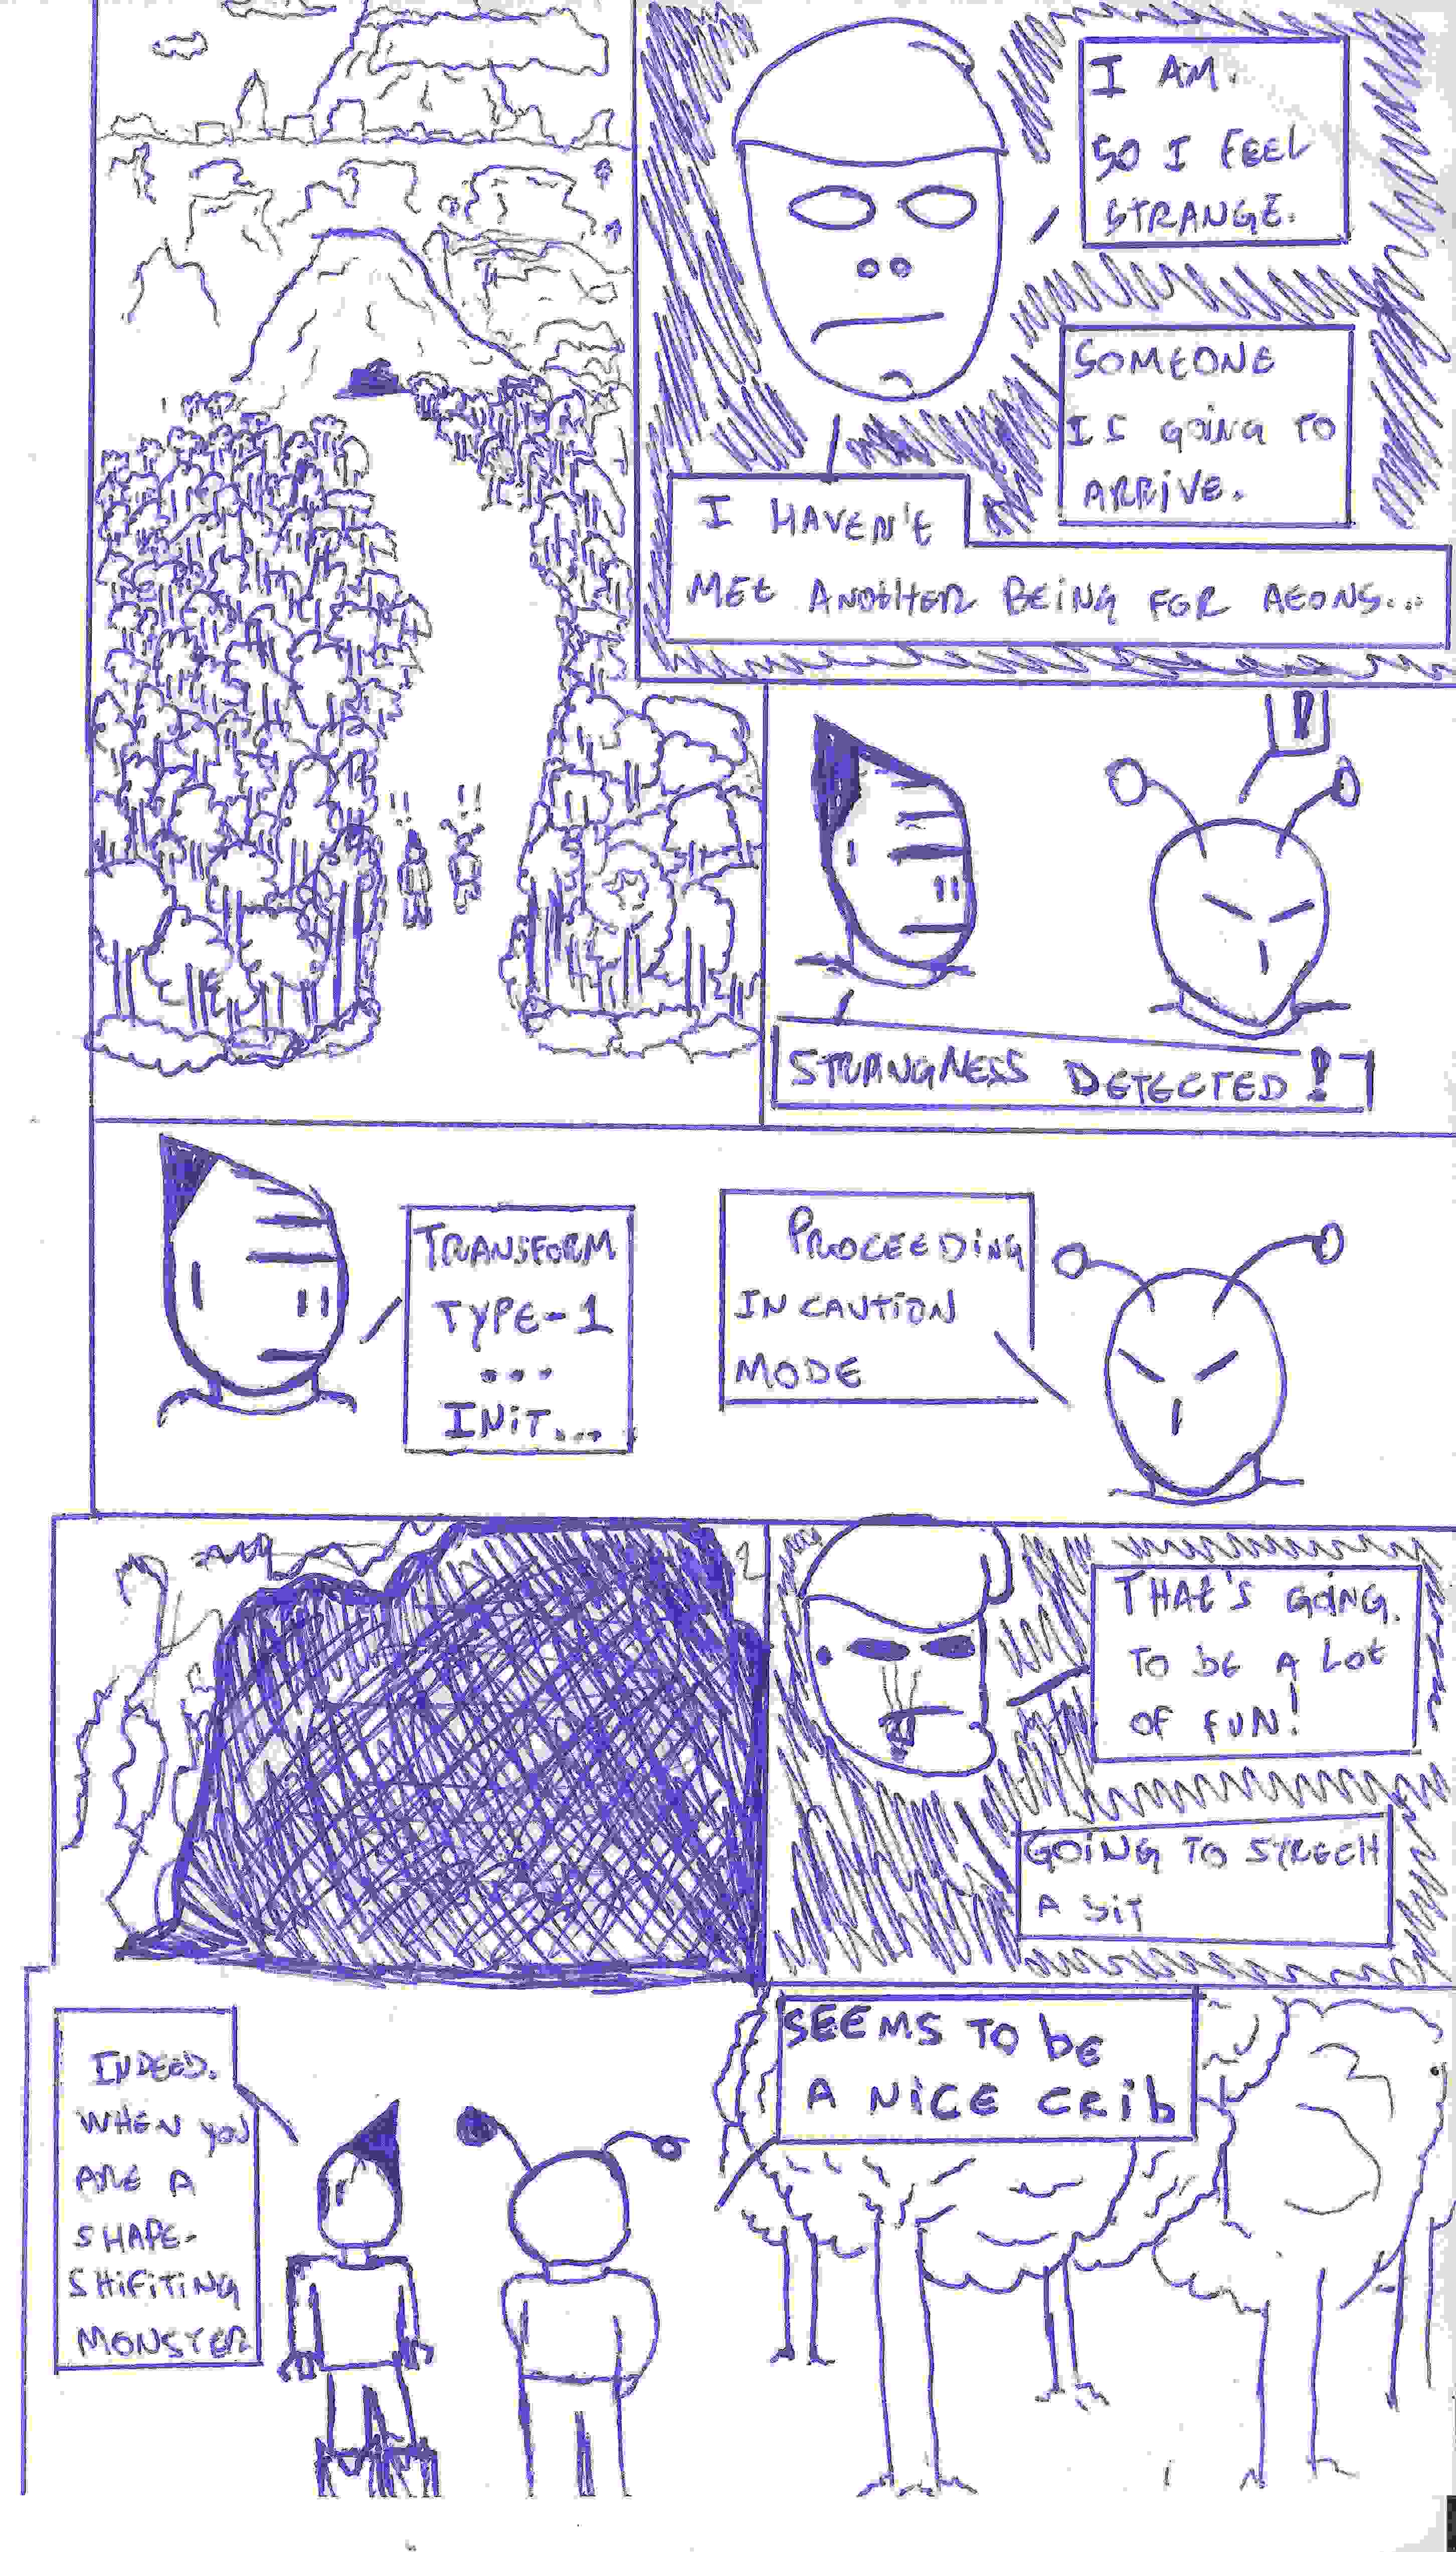 I AM.
SO I FEEL
STRANGE.
SOMEONE
IS GOING TO
ARRIVE.
I HAVEN't
MEt ANOtHER BEiNG FOR AEONS...
!! !!
!
STRANGNESS DETECTED!
TRANSFORM
TYPE-1
...
INiT...
PROCEEDiNG
IN CAUTiON
MODE
THAt'S GOiNG.
TO bE A LOt
OF FUN!
GOiNG TO STRECH
A biT
SEEMS TO bE
A NiCE CRib
INDEED.
WHEN yOU
ARE A
SHAPE-
SHiFiTiNG
MONSTER